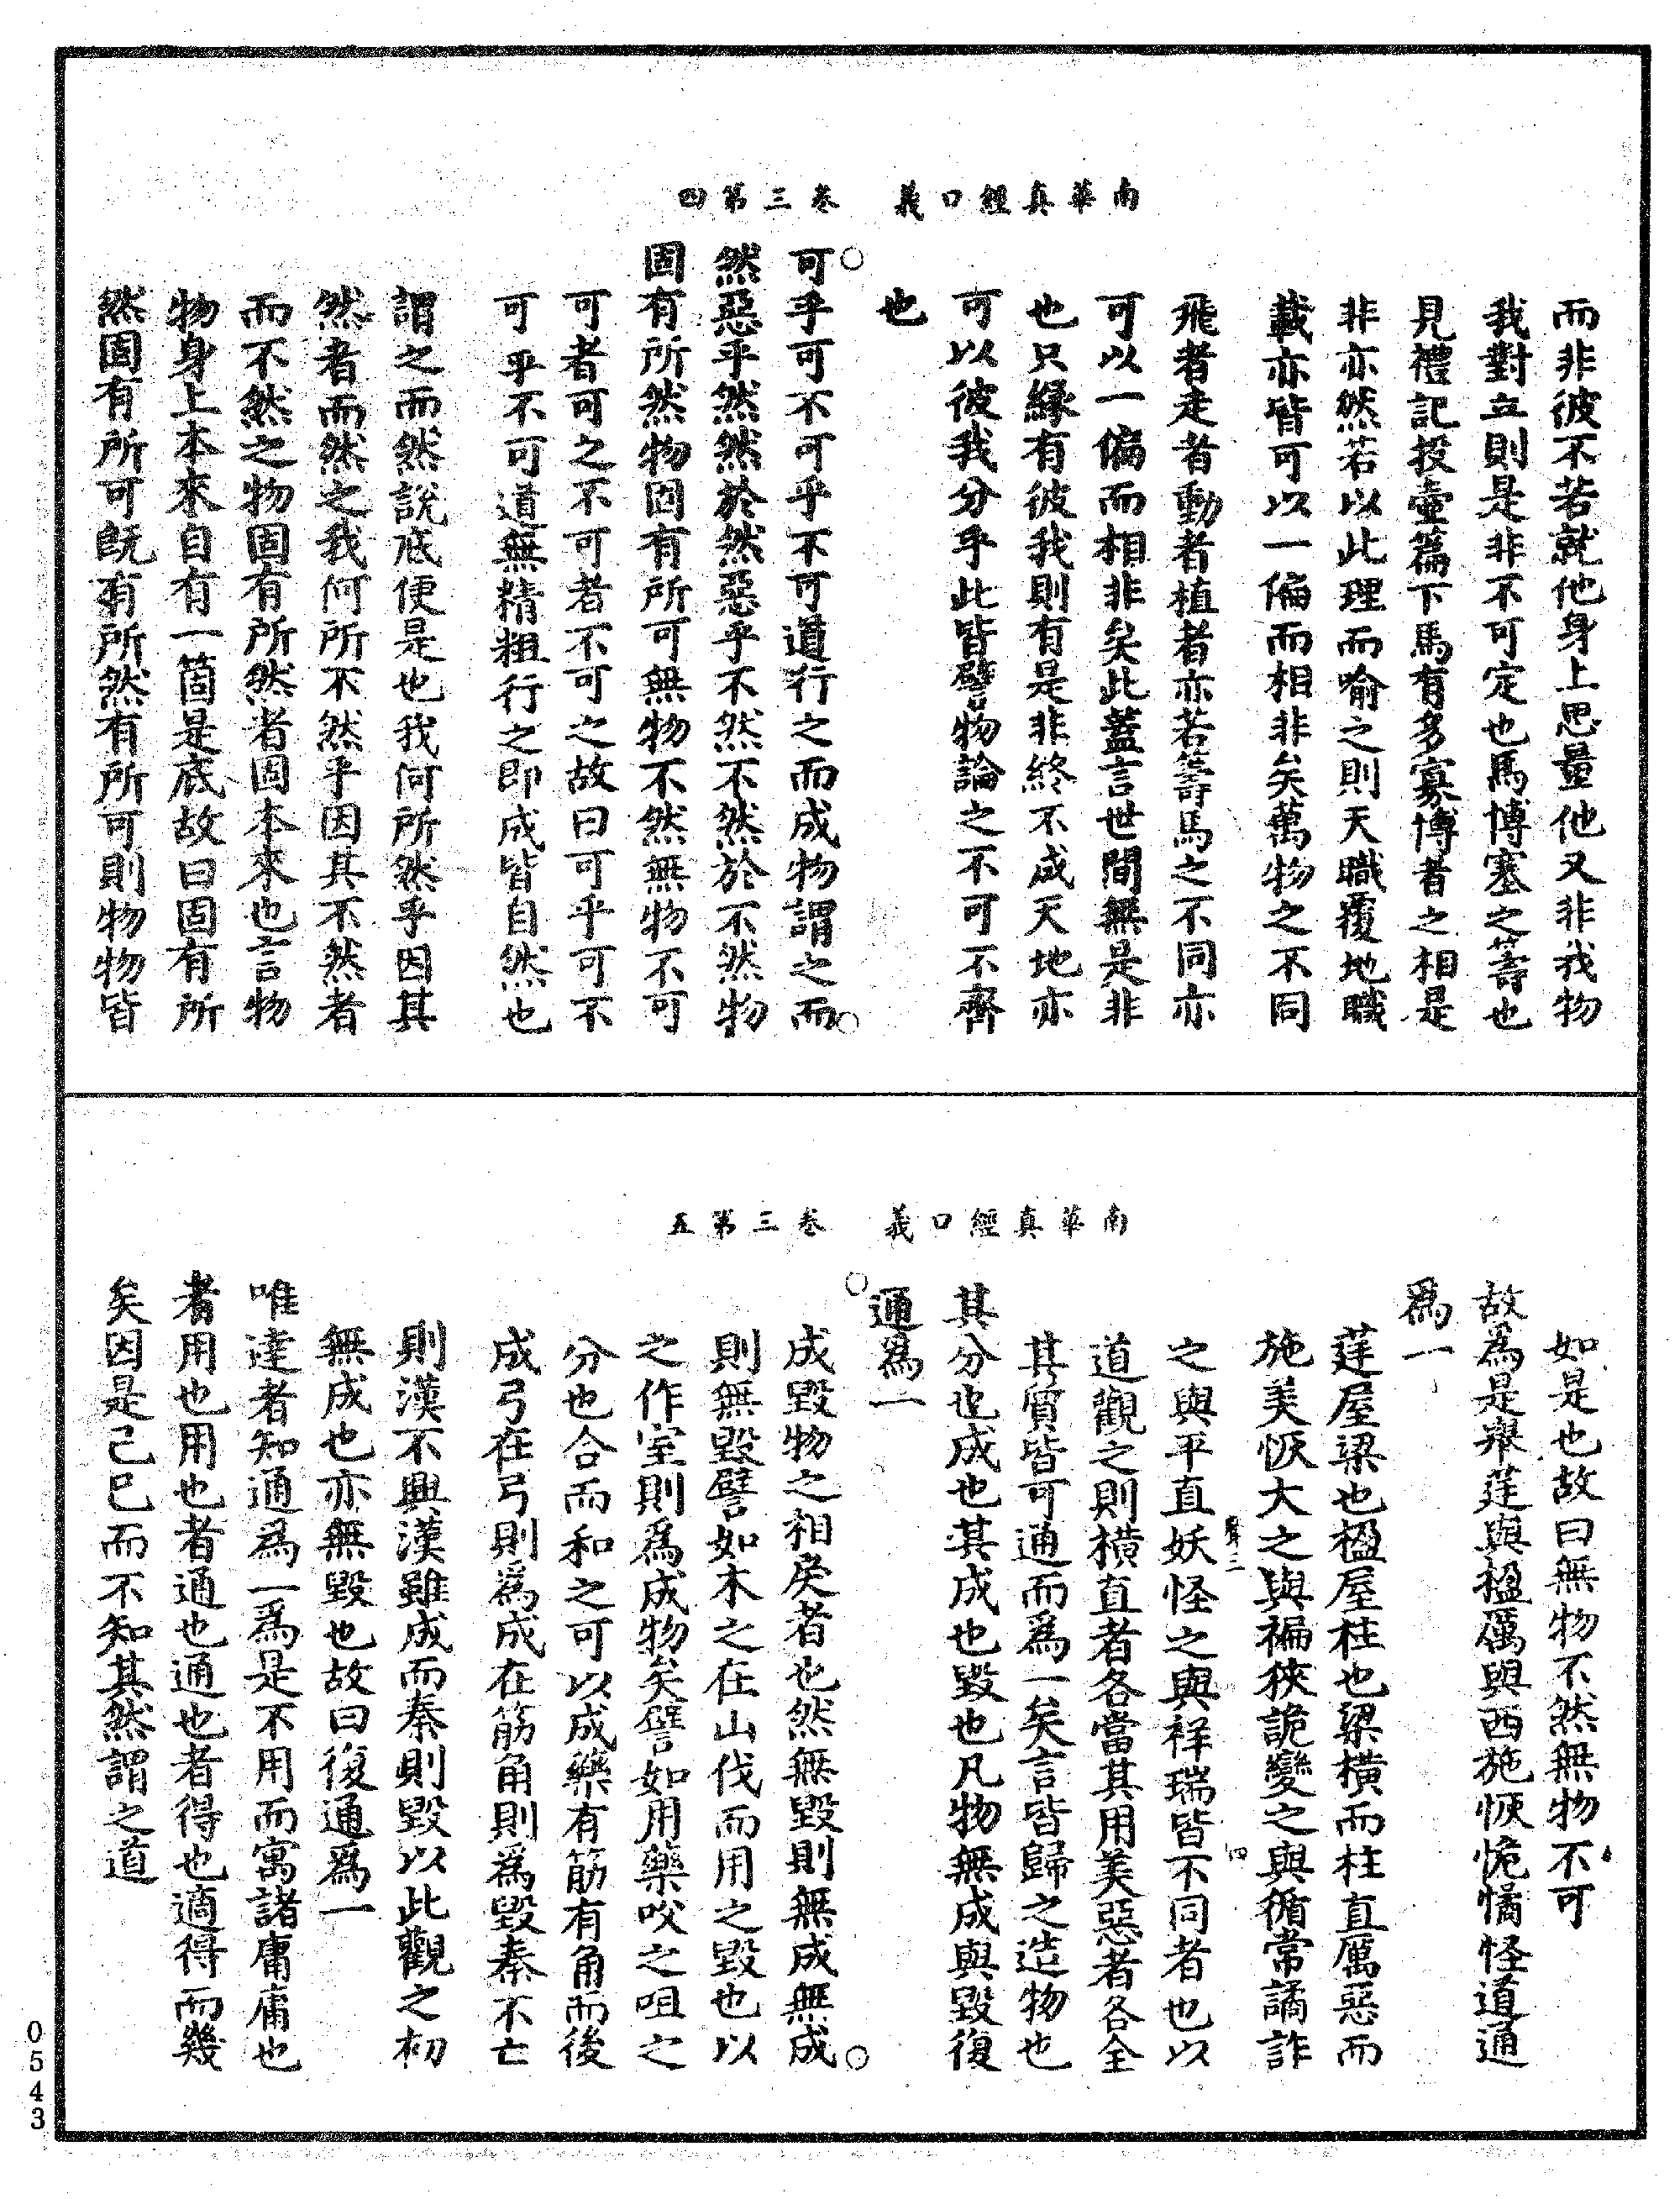 南華真經口義　卷三第四
而非彼不若就他身上思量他又非我物
我對立則是非不可定也馬博塞之籌也
見禮記投壺篇下馬有多寡博者之相是
非亦然若以此理而喻之則天職覆地職
載亦皆可以一偏而相非矣萬物之不同
飛者走者動者植者亦若籌馬之不同亦
可以一偏而相非矣此蓋言世間無是非
也只緣有彼我則有是非終不成天地亦
可以彼我分乎此皆譬物論之不可不齊
也
可乎可不可乎不可道行之而成物謂之而
然惡乎然然於然惡乎不然不然於不然物
固有所然物固有所可無物不然無物不可
可者可之不可者不可之故曰可乎可不
可乎不可道無精粗行之即成皆自然也
謂之而然說底便是也我何所然乎因其
然者而然之我何所不然乎因其不然者
而不然之物固有所然者固本來也言物
物身上本來自有一箇是底故曰固有所
然固有所可既有所然有所可則物物皆
南華真經口義　卷三第五
如是也故曰無物不然無物不可
故為是舉莛與楹厲與西施恢恑憰怪道通
爲一
莛屋梁也楹屋柱也梁橫而柱直厲惡而
施美恢大之與褊狹詭變之與循常譎詐
之與平直妖怪之與祥瑞皆不同者也以
道觀之則橫直者各當其用美惡者各全
其質皆可通而爲一矣言皆歸之造物也
其分也成也其成也毀也凡物無成與毀復
通爲一
成毀物之相戾者也然無毀則無成無成
則無毀譬如木之在山伐而用之毀也以
之作室則爲成物矣譬如用藥咬之咀之
分也合而和之可以成藥有筋有角而後
成弓在弓則爲成在筋角則爲毀秦不亡
則漢不興漢雖成而秦則毀以此觀之初
無成也亦無毀也故曰復通爲一
唯達者知通爲一爲是不用而寓諸庸庸也
者用也用也者通也通也者得也適得而幾
矣因是已已而不知其然謂之道
0543